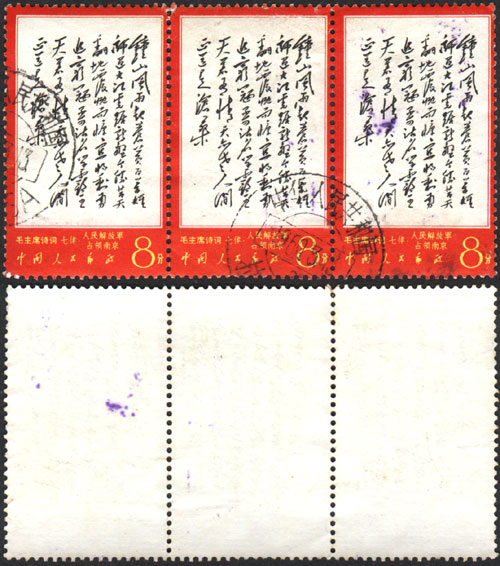 鍾山風雨起蒼黃百万雄
師過大江虎踞龍盤今勝昔天
翻地覆慨而慷宜將剩勇
追窮寇不可沽名學霸王
天若有情天亦老人間
正道是滄桑
毛主席诗词 七律 人民解放军
占领南京
中国人民邮政 8分
鍾山風雨起蒼黃百万雄
師過大江虎踞龍盤今勝昔天
翻地覆慨而慷宜將剩勇
追窮寇不可沽名學霸王
天若有情天亦老人間
正道是滄桑
毛主席诗词 七律 人民解放军
占领南京
中国人民邮政 8分
鍾山風雨起蒼黃百万雄
師過大江虎踞龍盤今勝昔天
翻地覆慨而慷宜將剩勇
追窮寇不可沽名學霸王
天若有情天亦老人間
正道是滄桑
毛主席诗词 七律 人民解放军
占领南京
中国人民邮政 8分